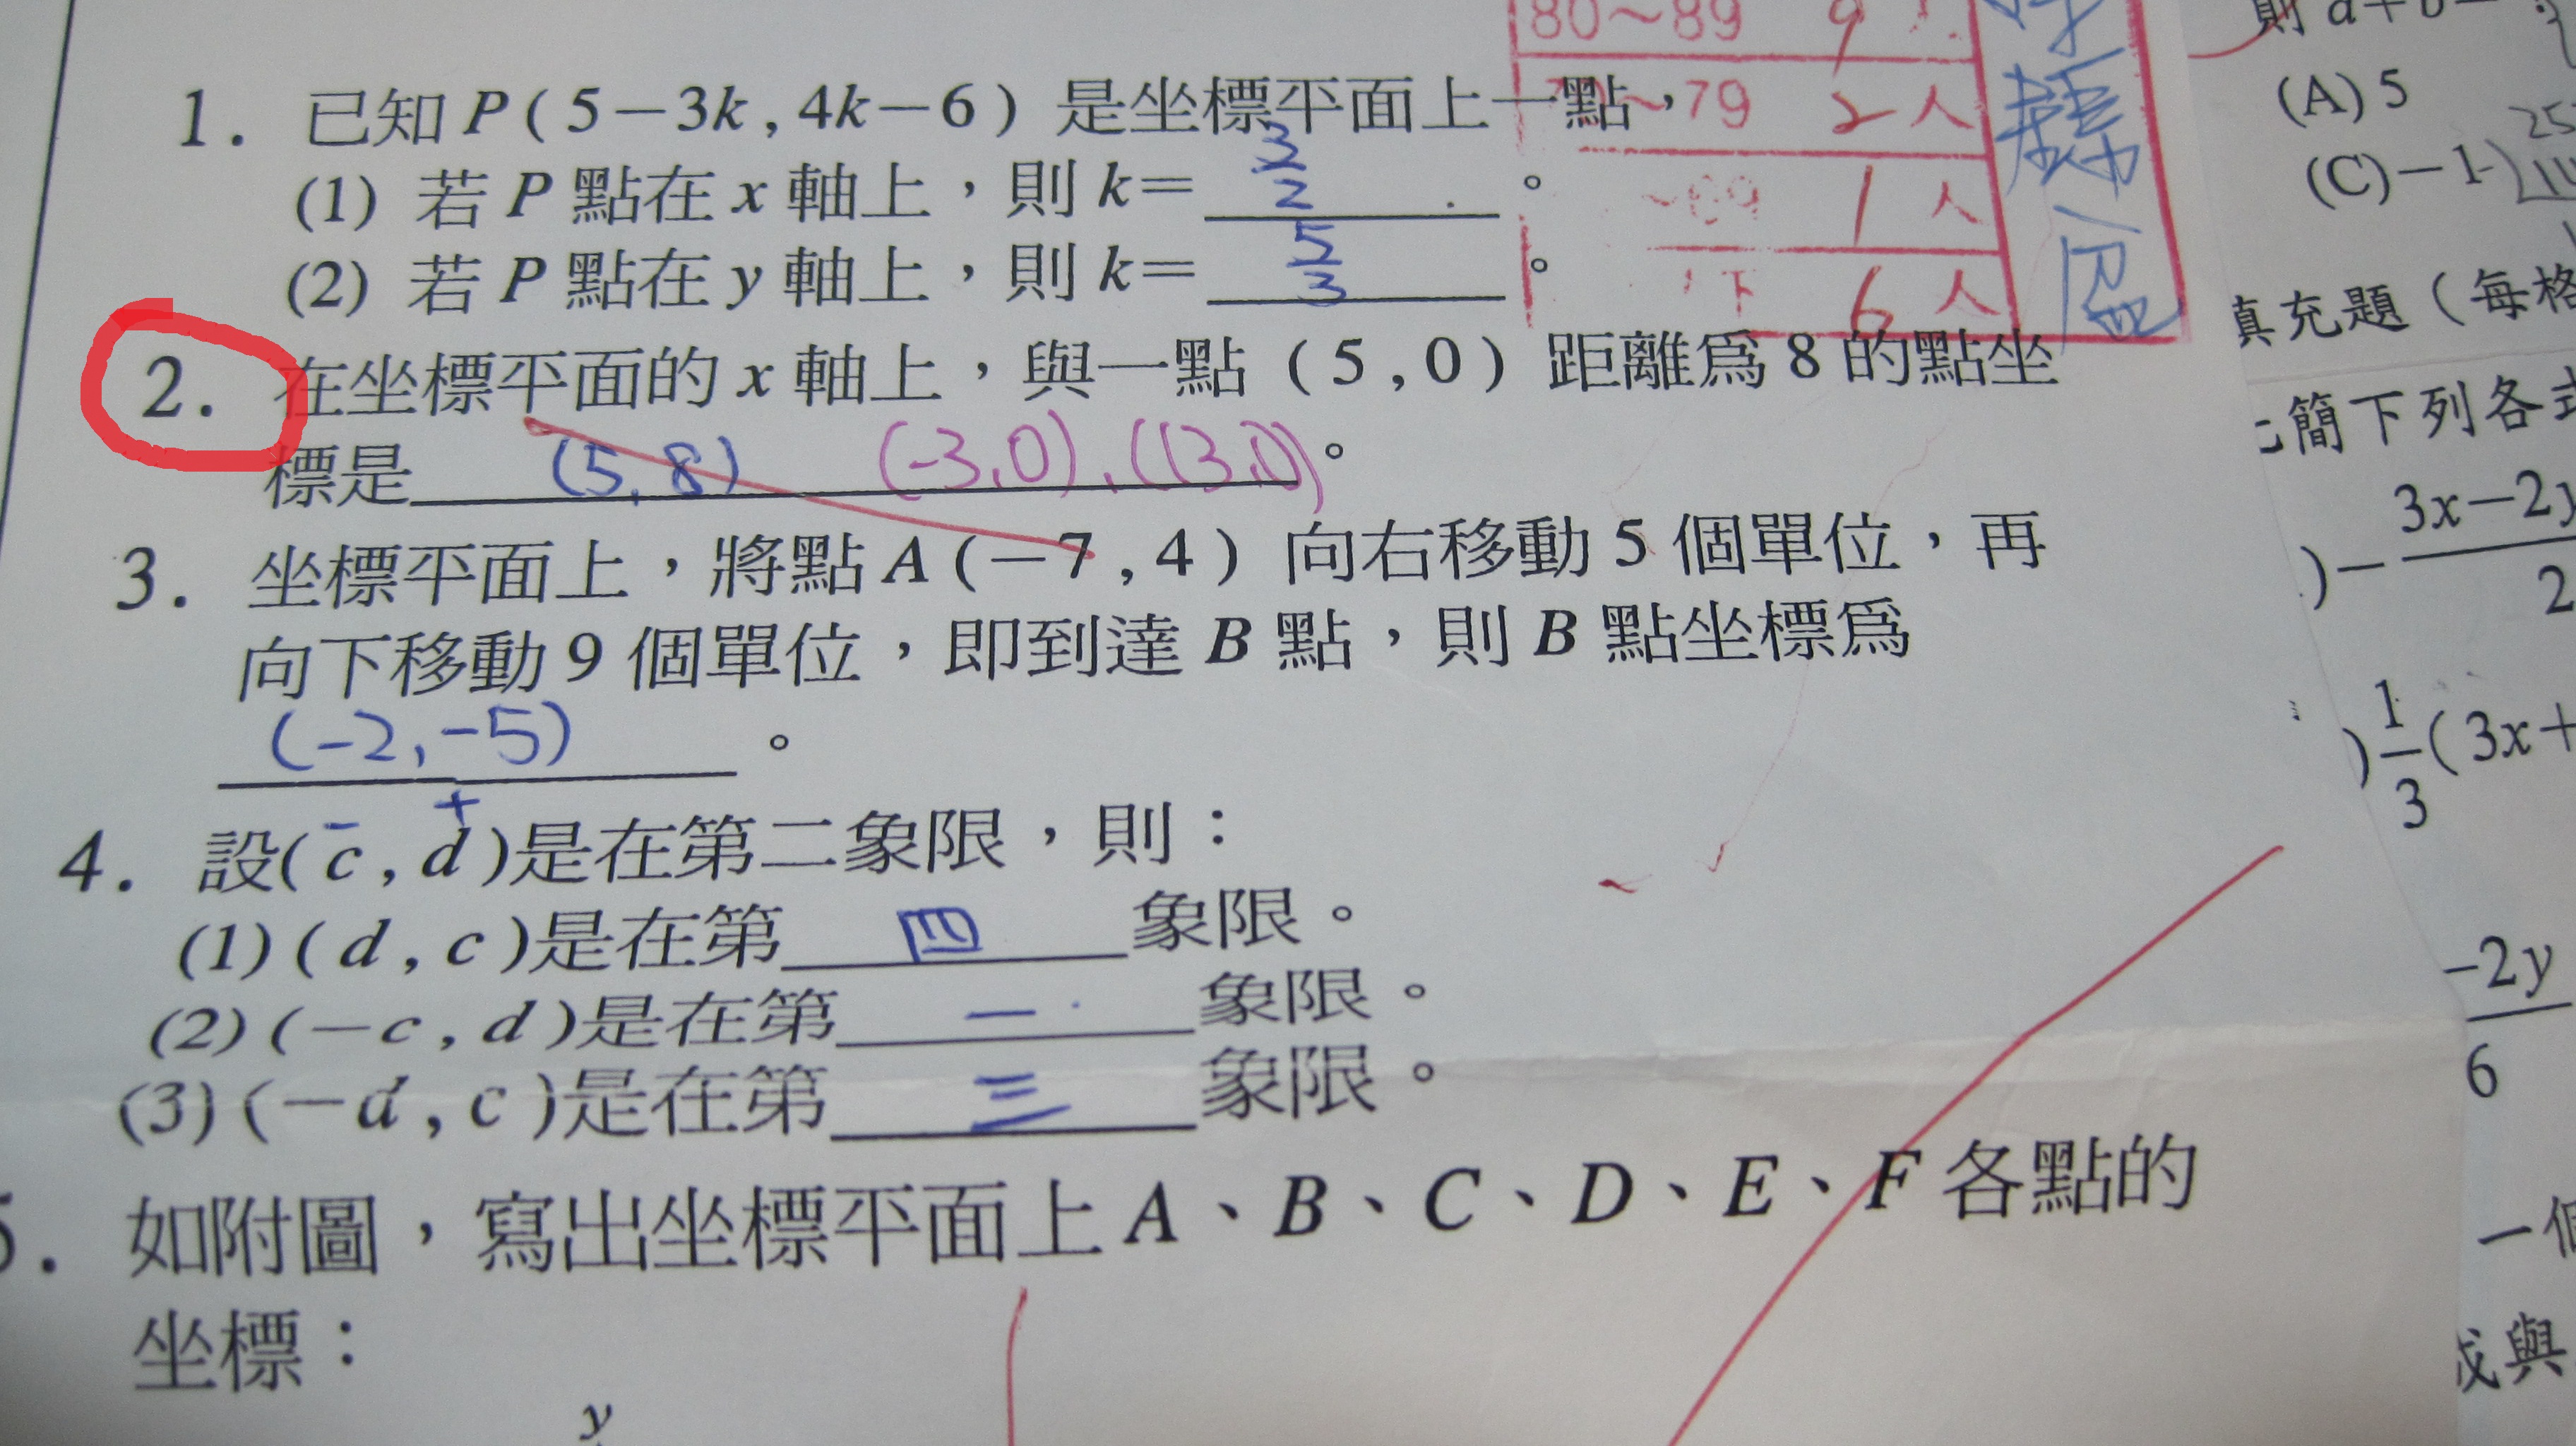 80～89 9人
1. 已知 P(5－3k,4k－6) 是坐標平面上一點，
～79 2人
(1) 若 P 點在 x 軸上，則 k＝ 3/2 。
～69 1人
(2) 若 P 點在 y 軸上，則 k＝ 5/3 。
下 6人
2. 在坐標平面的 x 軸上，與一點 (5,0) 距離爲 8 的點坐
標是 (5,8) (-3,0),(13,0)。
3. 坐標平面上，將點 A(－7,4) 向右移動 5 個單位，再
向下移動 9 個單位，即到達 B 點，則 B 點坐標爲
(-2,-5) 。
－ ＋
4. 設(c,d)是在第二象限，則：
(1)(d,c)是在第 四 象限。
(2)(－c,d)是在第 一 象限。
(3)(－d,c)是在第 三 象限。
5. 如附圖，寫出坐標平面上 A、B、C、D、E、F 各點的
坐標：
y
則 a＋b
(A) 5
25
(C)－1
填充題（每格
簡下列各式
)－ 3x－2y
2
) 1/3 (3x＋
-2y
6
一個
成與